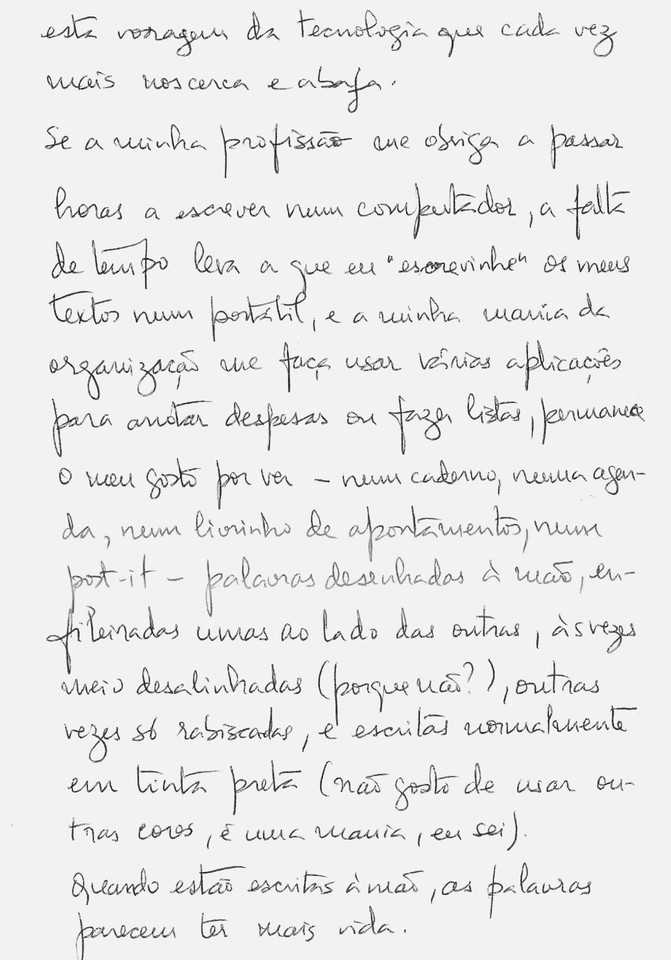 esta voragem da tecnologia que cada vez
mais nos cerca e abafa.
Se a minha profissão me obriga a passar
horas a escrever num computador, a falta
de tempo leva a que eu "escrevinhe" os meus
textos num portátil, e a minha mania da
organização me faça usar várias aplicações
para anotar despesas ou fazer listas, permanece
o meu gosto por ver – num caderno, numa agen-
da, num livrinho de apontamentos, num
post-it – palavras desenhadas à mão, en-
fileiradas umas ao lado das outras, às vezes
meio desalinhadas (porque não?), outras
vezes só rabiscadas, e escritas normalmente
em tinta preta (não gosto de usar ou-
tras cores, é uma mania, eu sei).
Quando estão escritas à mão, as palavras
parecem ter mais vida.